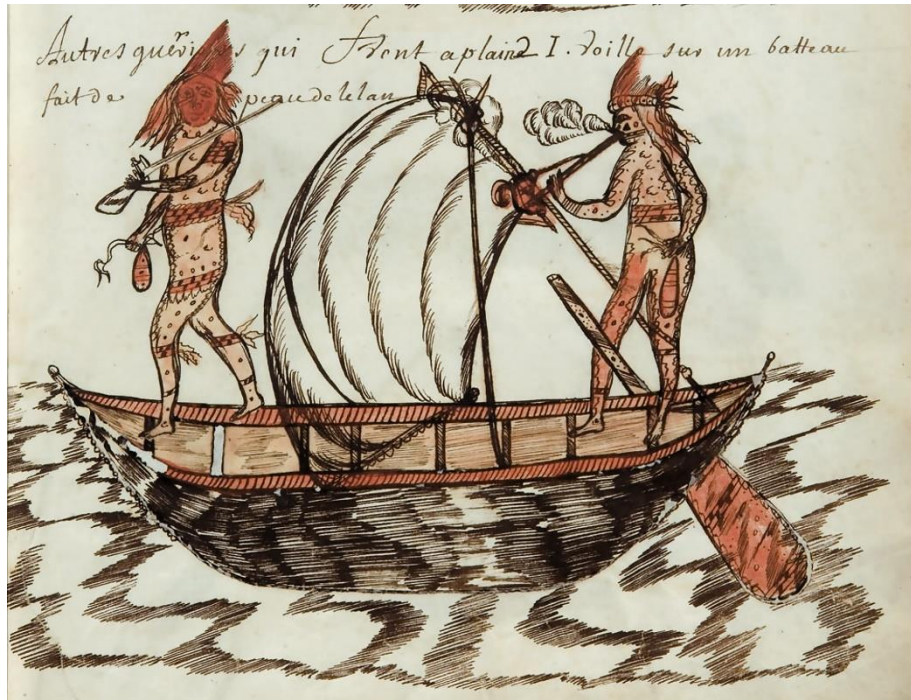 Autres guerriers qui aplaine I. voille sur un batteau
fait de peau de lelan